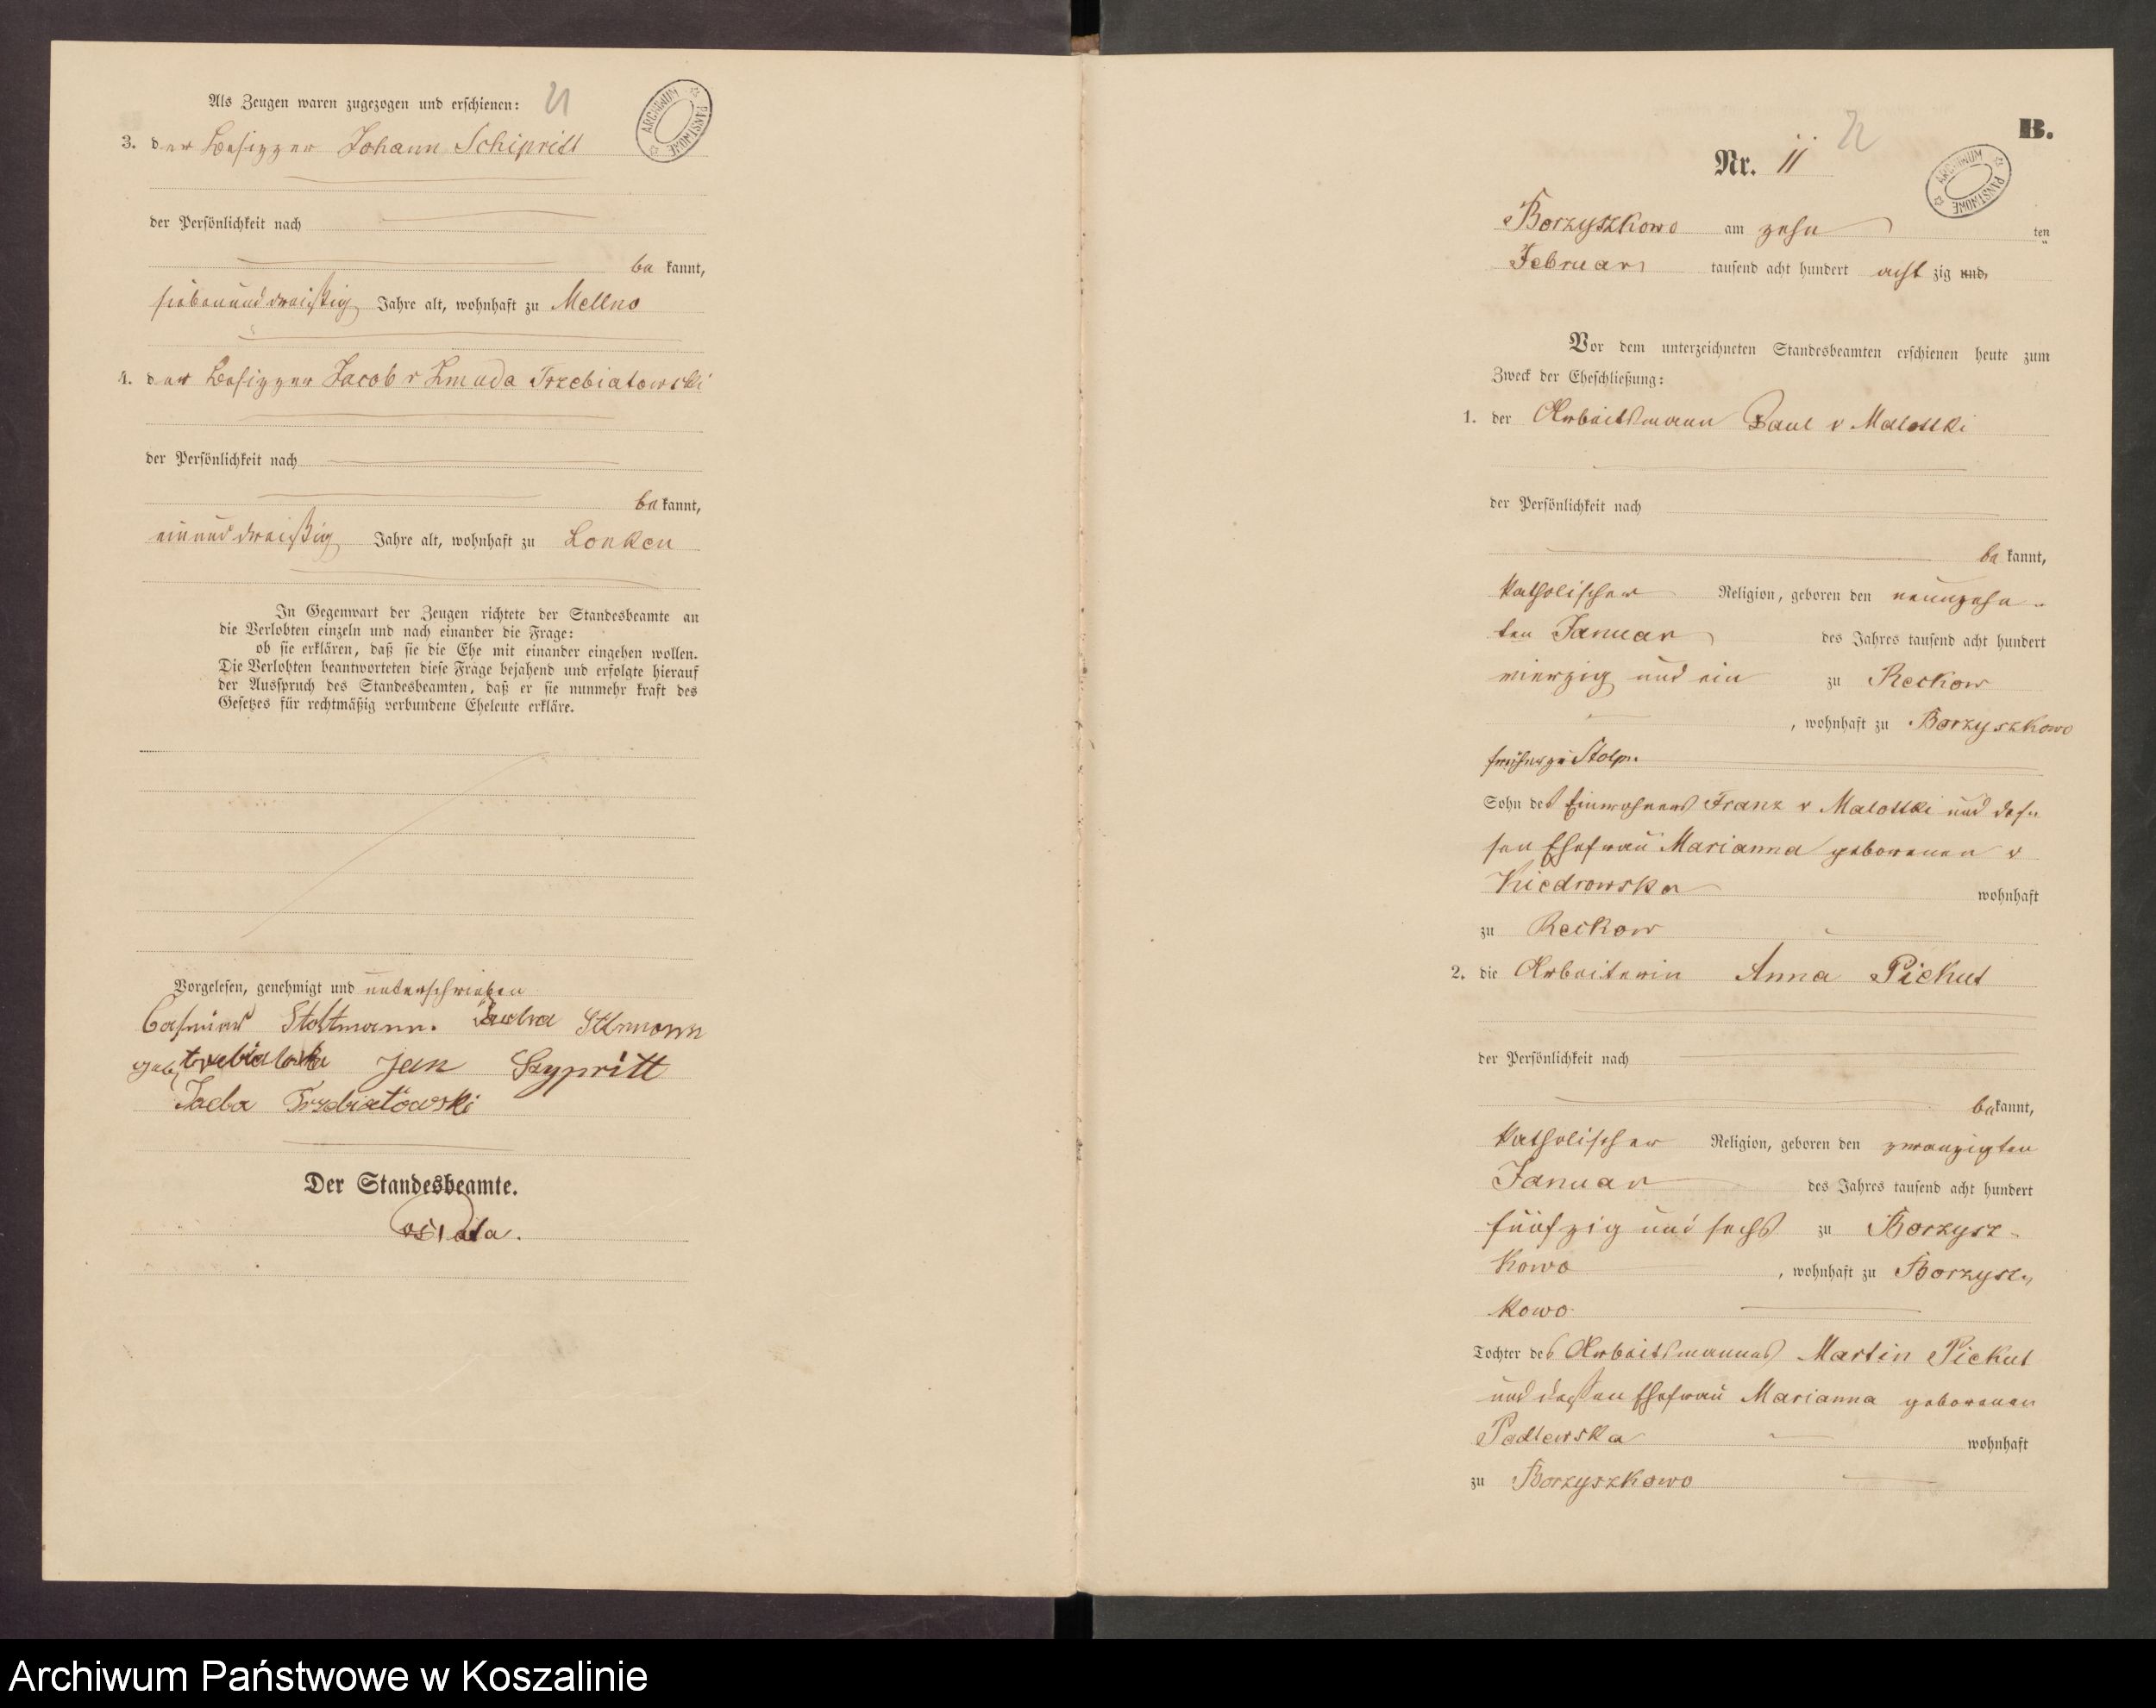 Als Zeugen waren zugezogen und erschienen:
21
ARCHIWUM PAŃSTWOWE
3. der Besitzer Johann Schipritt
der Persönlichkeit nach
bekannt,
siebenunddreißig Jahre alt, wohnhaft zu Mellno
4. der Besitzer Jacob v Zmuda Trzebiatowski
der Persönlichkeit nach
bekannt,
einunddreißig Jahre alt, wohnhaft zu Lonken
In Gegenwart der Zeugen richtete der Standesbeamte an
die Verlobten einzeln und nach einander die Frage:
ob sie erklären, daß sie die Ehe mit einander eingehen wollen.
Die Verlobten beantworteten diese Frage bejahend und erfolgte hierauf
der Ausspruch des Standesbeamten, daß er sie nunmehr kraft des
Gesetzes für rechtmäßig verbundene Eheleute erkläre.
Vorgelesen, genehmigt und unterschrieben
Casimir Stoltmann.
geb. Jan Szypritt
Trzebiatowski
Der Standesbeamte.
B.
22
Nr. 11
ARCHIWUM PAŃSTWOWE
Borzyszkowo am zehn ten
Februar tausend acht hundert achtzig und
Vor dem unterzeichneten Standesbeamten erschienen heute zum
Zweck der Eheschließung:
1. der Arbeitsmann Paul v Malottki
der Persönlichkeit nach
bekannt,
katholischer Religion, geboren den neunzehn-
ten Januar des Jahres tausend acht hundert
vierzig und ein zu Reckow
, wohnhaft zu Borzyszkowo
früher zu Stolp.
Sohn des Einwohners Franz v Malottki und des-
sen Ehefrau Marianna geborenen v
Kiedrowska wohnhaft
zu Reckow
2. die Arbeiterin Anna Piekut
der Persönlichkeit nach
bekannt,
katholischer Religion, geboren den zwanzigten
Januar des Jahres tausend acht hundert
fünfzig und sechs zu Borzysz-
kowo , wohnhaft zu Borzysz-
kowo
Tochter des Arbeitsmannes Martin Piekut
und dessen Ehefrau Marianna geborenen
Padlewska wohnhaft
zu Borzyszkowo
Archiwum Państwowe w Koszalinie